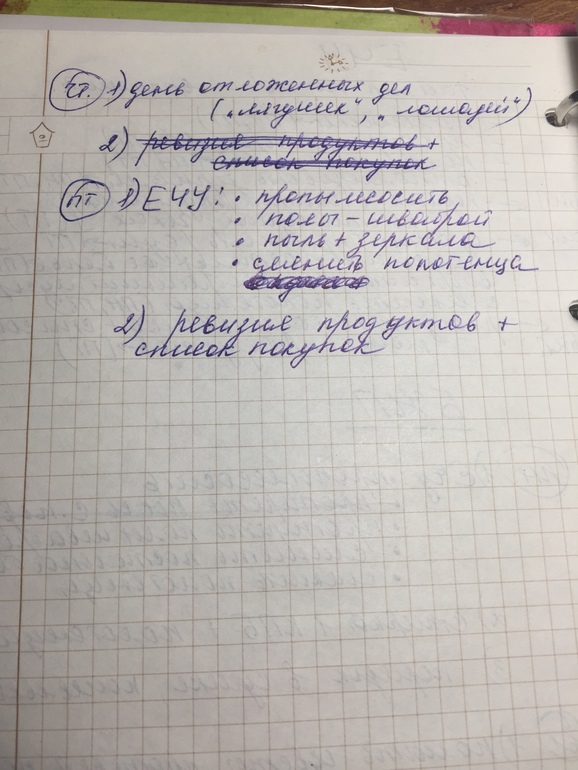 чт. 1) день отложенных дел
(„лягушек“, „лошадей“)
2) ревизия продуктов +
список покупок
пт 1) ЕЧУ: • пропылесосить
• полы – шваброй
• пыль + зеркала
• сменить полотенца
2) ревизия продуктов +
список покупок